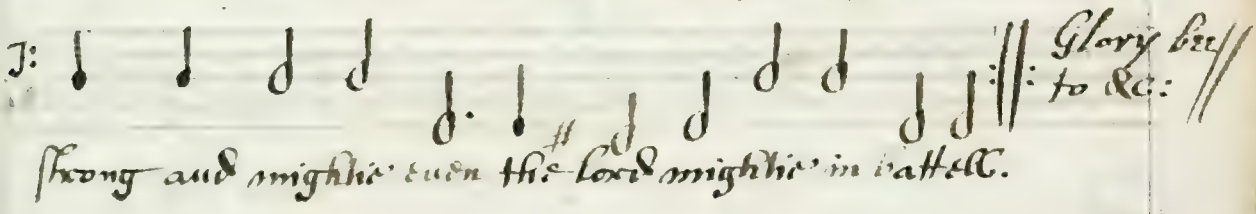 Glory bee
to &c:
strong and mightie even the lord mightie in battell.